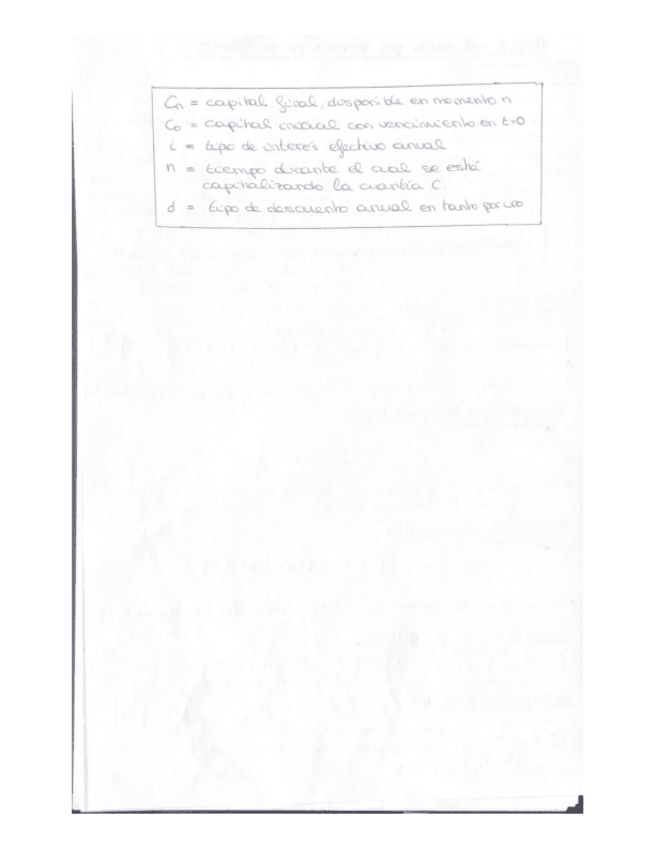 Cn = capital final, disponible en momento n
C₀ = capital inicial con vencimiento en t=0
i = tipo de interés efectivo anual
n = tiempo durante el cual se está
capitalizando la cuantía C.
d = tipo de descuento anual en tanto por uno